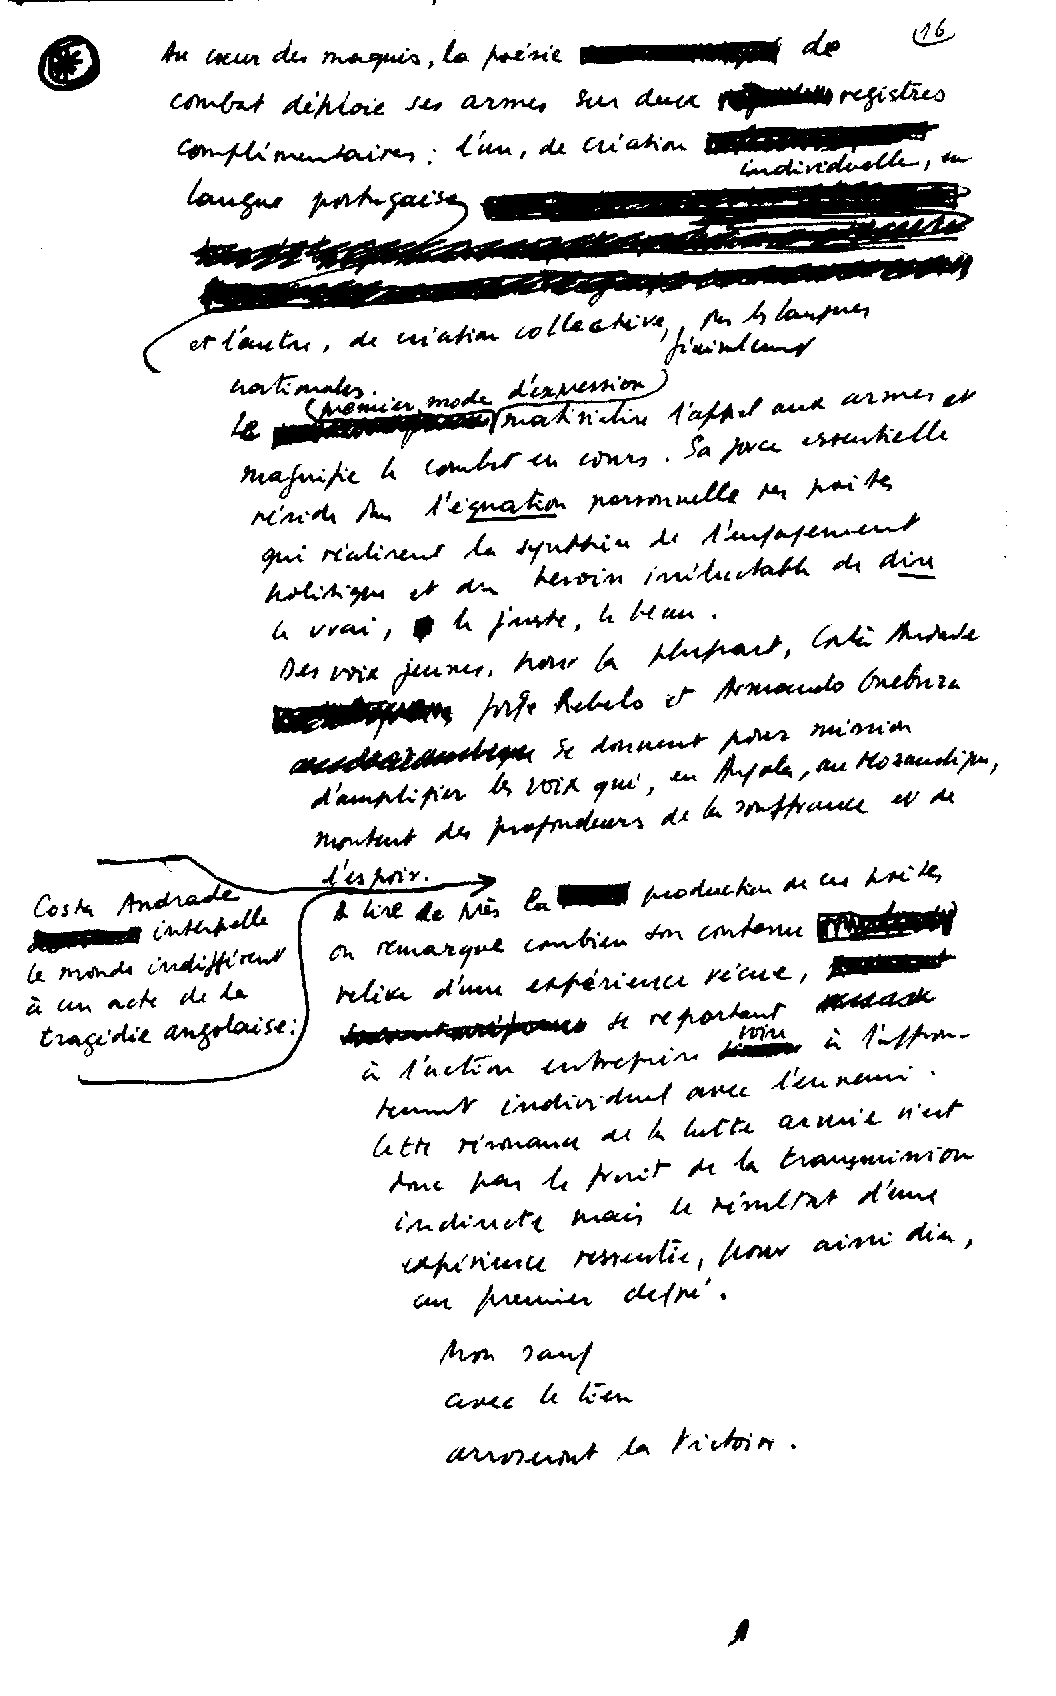 16
Au cœur des maquis, la poésie de
combat déploie ses armes sur deux registres
complémentaires : l'un, de création
individuelle, en
langue portugaise
et l'autre, de création collective, dans les langues
nationales.
premier mode d'expression
Le matérialise l'appel aux armes et
magnifie le combat en cours. Sa force essentielle
réside dans l'équation personnelle des poètes
qui réalisent la synthèse de l'engagement
politique et du besoin inéluctable de dire
le vrai, le juste, le beau.
Des voix jeunes, pour la plupart, Costa Andrade
Jorge Rebelo et Armando Guebuza
se donnent pour mission
d'amplifier les voix qui, en Angola, au Mozambique,
montent des profondeurs de la souffrance et de
l'espoir.
Costa Andrade
interpelle
le monde indifférent
à un acte de la
tragédie angolaise :
A lire de près la production de ces poètes
on remarque combien son contenu
relève d'une expérience vécue,
se reportant
voire
à l'action entreprise à l'affron-
tement individuel avec l'ennemi.
Cette résonance de la lutte armée n'est
donc pas le fruit de la transmission
indirecte mais le résultat d'une
expérience ressentie, pour ainsi dire,
au premier degré.
Mon sang
avec le tien
arroseront la Victoire.